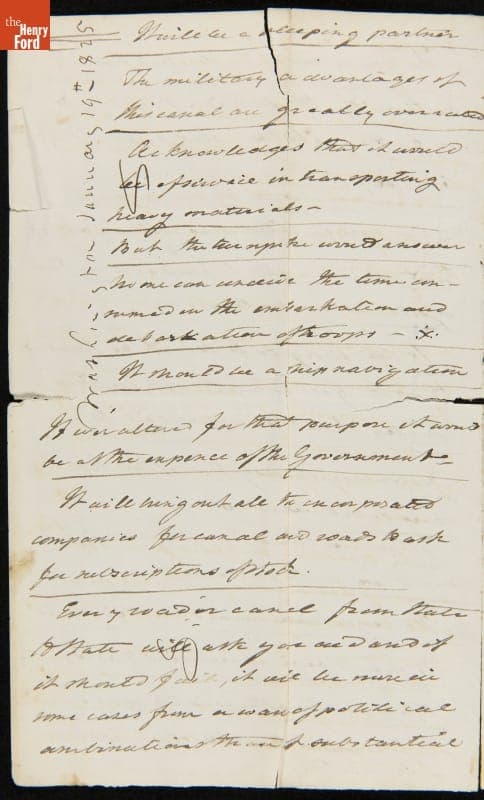 the
Henry
Ford
Washington January 19th 1825
It will be a sleeping partner
The military advantages of
this canal are greally overrated
Acknowledges that it would
be of service in transporting
heavy materials –
But the turnpike would answer
No one can conceive the time con-
summed in the embarkation and
debarkation of troops –
It should be a ship navigation
If ever altered for that purpose it would
be at the expence of the Government –
It will bring out all the incorporated
companies for canal and roads to ask
for subscriptions of stock.
Every road or canal from State
to State will ask you aid and if
it should fail, it will be more in
some cases from a want of political
combinations than of substantial